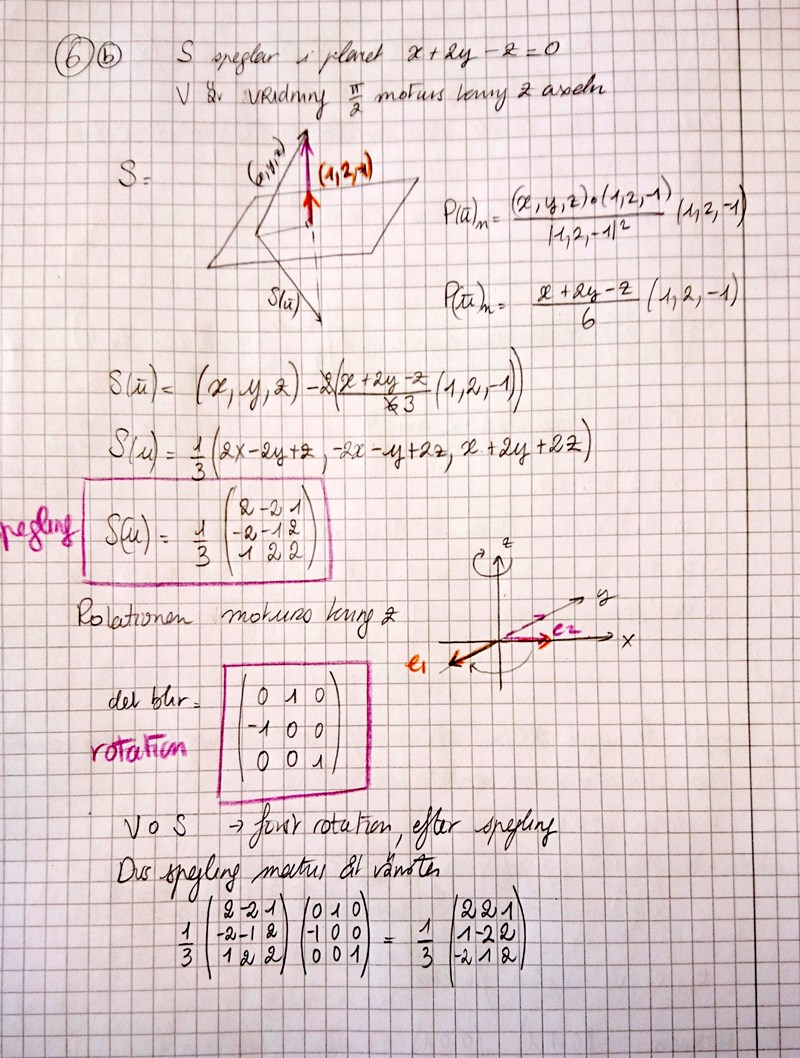 6 b S speglar i planet x + 2y - z = 0
V är vridning π/2 moturs kring z axeln
S =
(x, y, z)
(1, 2, -1)
S(ū)
P(ū)n = (x, y, z)•(1, 2, -1) / |1, 2, -1|² (1, 2, -1)
P(ū)n = x + 2y - z / 6 (1, 2, -1)
S(ū) = (x, y, z) - 2(x + 2y - z / 6 3 (1, 2, -1))
S(u) = 1/3 (2x - 2y + z, -2x - y + 2z, x + 2y + 2z)
spegling S(ū) = 1/3
2 -2 1
-2 -1 2
1 2 2
Rotationen moturs kring z
z
y
x
e1
e2
det blir =
rotation
0 1 0
-1 0 0
0 0 1
V o S → först rotation, efter spegling
Dvs spegling åt vänster
1/3 (2 -2 1) (0 1 0) = 1/3 (2 2 1)
(-2 -1 2) (-1 0 0) (1 -2 2)
(1 2 2) (0 0 1) (-2 1 2)